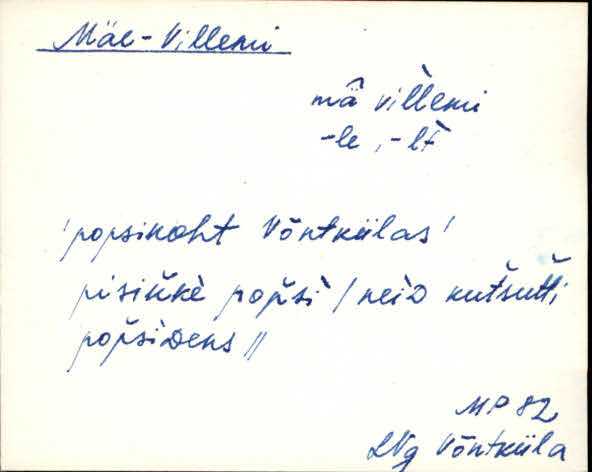 Mäe-Villemi
mä̂ vil̀lemi
-le, -lt̆
'popsikoht Võntkülas'
pisik̆kè pop̆sì / neìᴅ kut̆šutt̆i
pop̆sìᴅeks //
MP 82
LNg Võntküla